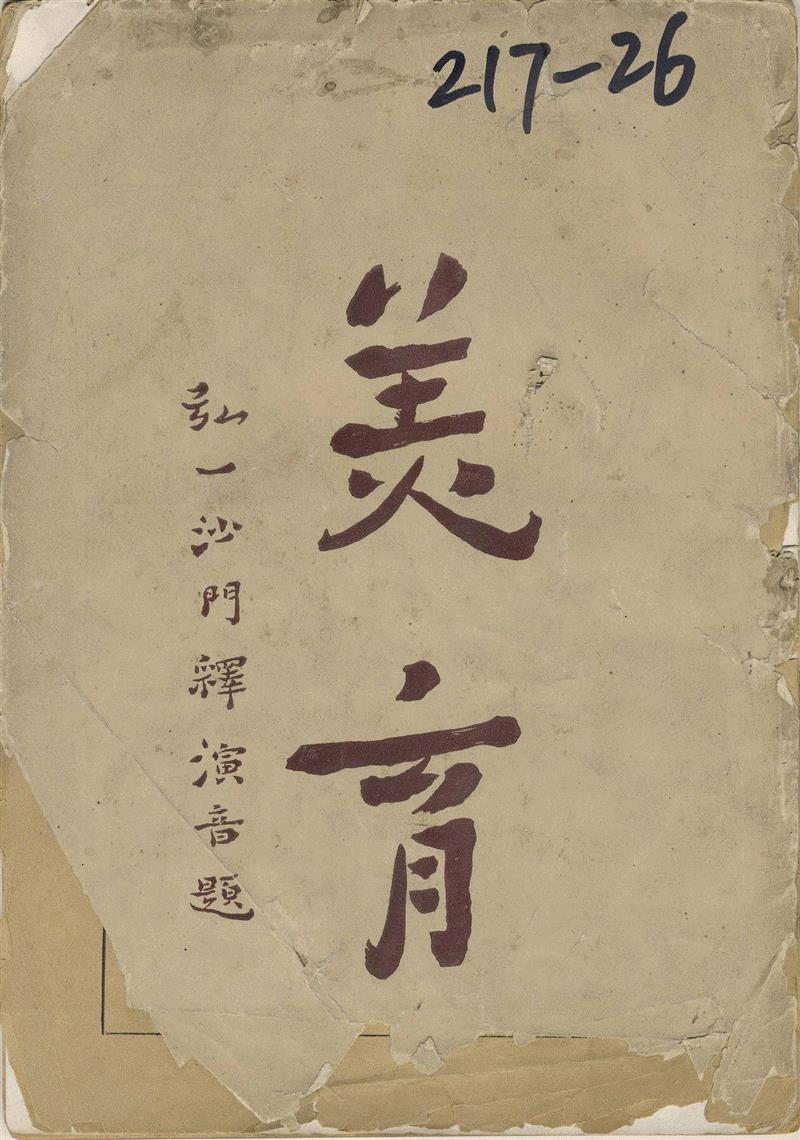 217-26
美育
弘一沙門釋演音題